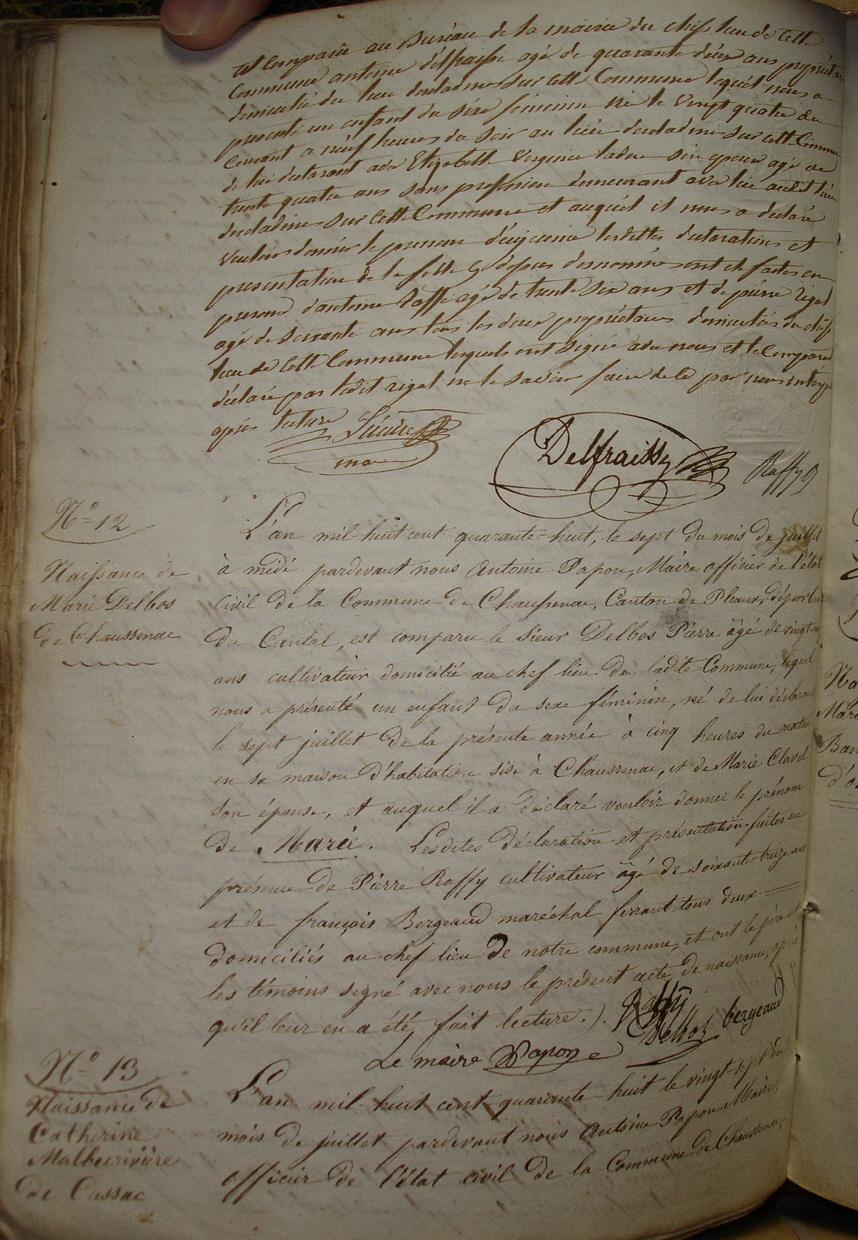 est comparu au Bureau de la mairie du chef lieu de cette
Commune antoine delfraissy agé de quarante deux ans propriétaire
domicilié du lieu sur cette Commune lequel nous a
presenté un enfant du sexe feminin né le vingt quatre du
Courant a neuf heures du Soir au lieu sur cette Commune
de lui declarant et de Elizabeth Virginie son epouse agé de
trente quatre ans sans profession demeurant avec lui audit lieu
sur cette Commune et auquel il nous a declaré
vouloir donner le prenom lesdittes declarations et
presentation de la fille dessus denommé ont été faites en
presence d'antoine Raffy agé de trente Six ans et de pierre rigal
agé de Soixante ans tous les deux propriétaires domiciliés du chef
lieu de cette Commune lesquels ont signé avec nous et le Comparant
déclaré par ledit rigal ne le savoir faire de ce par nous
après lecture
Delfraissy Raffy
N° 12
Naissance de
Marie Delbos
de Chaussenac
L'an mil huit cent quarante-huit, le sept du mois de juillet
à midi pardevant nous Antoine Papon, Maire officier de l'état
civil de la Commune de Chaussenac, Canton de Pleaux, départ.
du Cantal, est comparu le sieur Delbos Pierre âgé de vingt
ans cultivateur domicilié au chef lieu de ladite Commune, lequel
nous a présenté un enfant du sexe féminin, né de lui déclarant
le sept juillet de la présente année à cinq heures du matin
en sa maison d'habitation sise à Chaussenac, et de Marie Clavel
son épouse, et auquel il a déclaré vouloir donner le prénom
de Marie. Lesdites déclaration et présentation faites en
présence de Pierre Raffy cultivateur âgé de soixante-treize ans
et de françois Bergeaud maréchal ferrant tous deux
domiciliés au chef lieu de notre commune, et ont le père et
les témoins signé avec nous le présent acte de naissance, après
qu'il leur en a été fait lecture.) Raffy
Delbos bergeaud
Le maire Papon
N° 13
Naissance de
Catherine
de Cussac
L'an mil huit cent quarante huit le vingt sept du
mois de juillet pardevant nous Antoine Papon Maire,
officier de l'état civil de la Commune de Chaussenac,